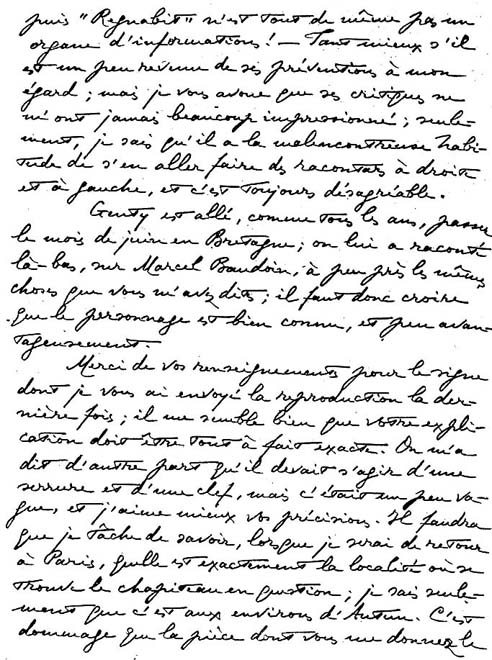 puis "Regnabit" n'est tout de même pas un
organe d'informations ! — Tant mieux s'il
est un peu revenu de ses préventions à mon
égard ; mais je vous avoue que ses critiques ne
m'ont jamais beaucoup impressionné ; seule-
ment, je sais qu'il a la malencontreuse habi-
tude de s'en aller faire des racontars à droite
et à gauche, et c'est toujours désagréable.
Genty est allé, comme tous les ans, passer
le mois de juin en Bretagne ; on lui a raconté
là-bas, sur Marcel Baudoin, à peu près les mêmes
choses que vous m'avez dites ; il faut donc croire
que le personnage est bien connu, et peu avan-
tageusement.
Merci de vos renseignements pour le signe
dont je vous ai envoyé la reproduction la der-
nière fois ; il me semble bien que votre expli-
cation doit être tout à fait exacte. On m'a
dit d'autre part qu'il devait s'agir d'une
serrure et d'une clef, mais c'était un peu va-
gue, et j'aime mieux vos précisions. Il faudra
que je tâche de savoir, lorsque je serai de retour
à Paris, quelle est exactement la localité où se
trouve le chapiteau en question ; je sais seule-
ment que c'est aux environs d'Autun. C'est
dommage que la pièce dont vous me donnez le